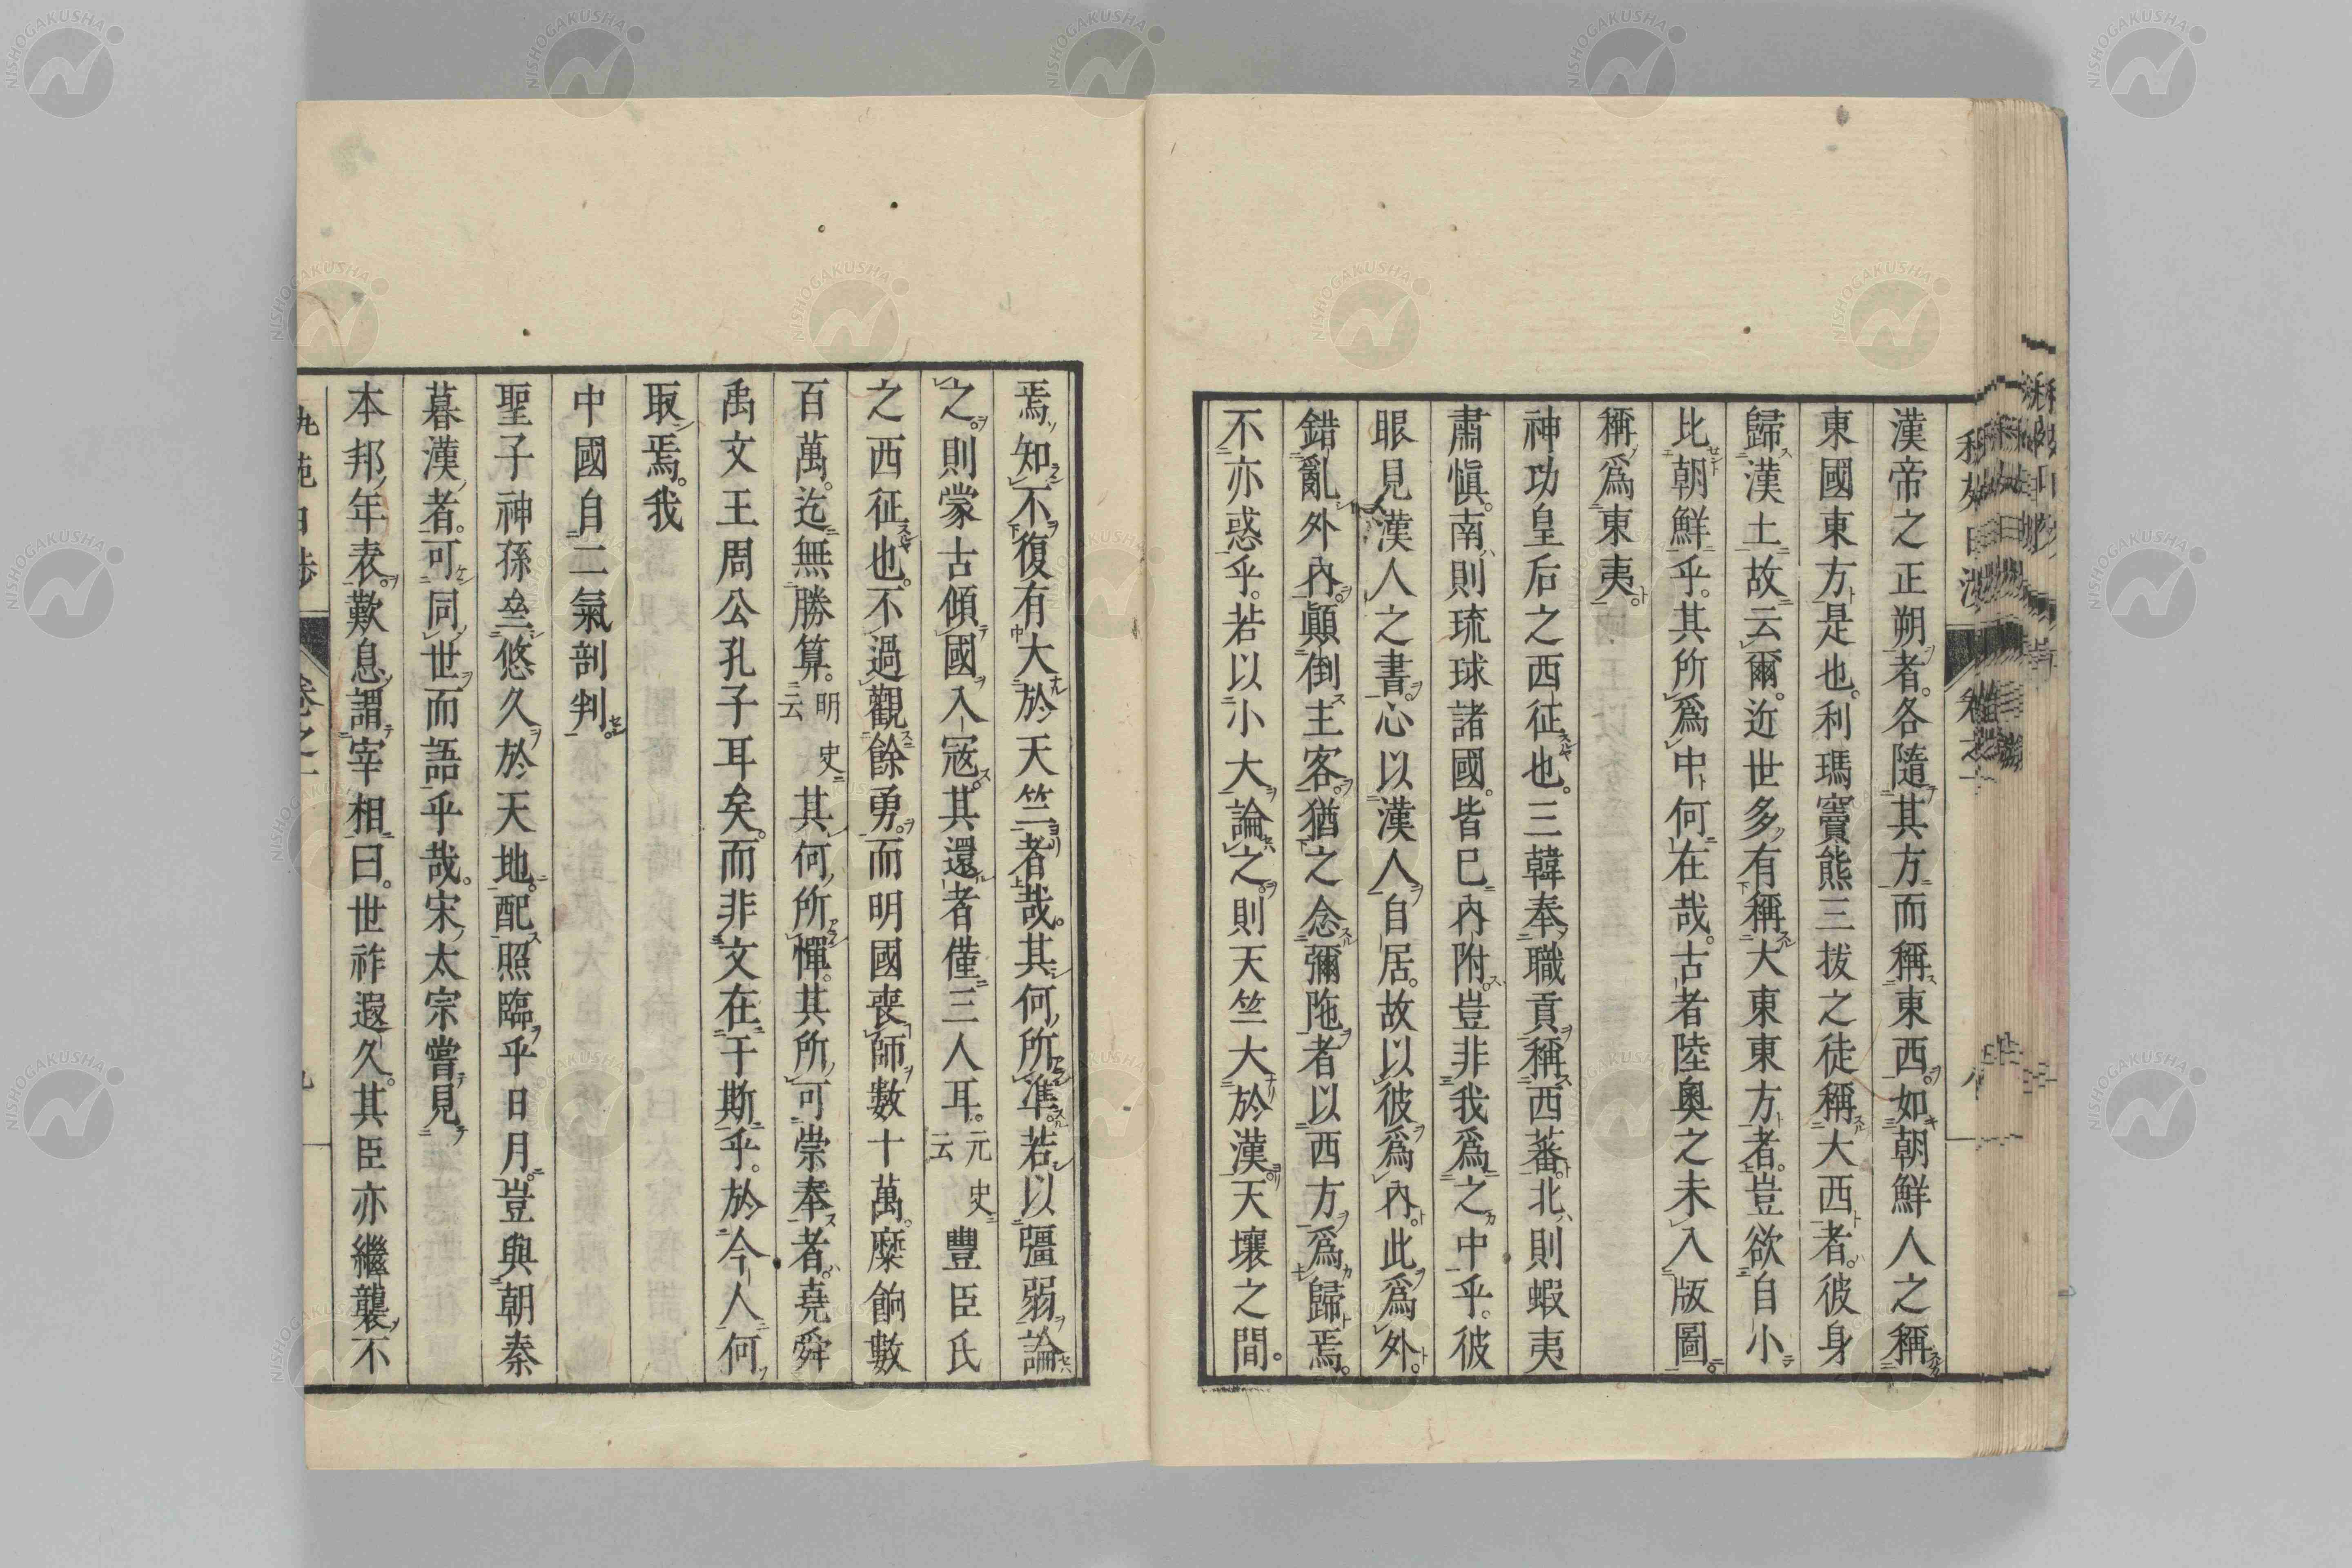 漢帝之正朔者。各隨其方而稱東西。如朝鮮人之稱
東國東方是也。利瑪竇熊三拔之徒稱大西者。彼身
歸漢土故云爾。近世多有稱大東東方者。豈欲自小
比朝鮮乎。其所爲中何在哉。古者陸奧之未入版圖。
稱爲東夷。
神功皇后之西征也。三韓奉職貢稱西蕃。北則蝦夷
肅愼。南則琉球諸國。皆已內附。豈非我爲之中乎。彼
眼見漢人之書。心以漢人自居。故以彼爲內。此爲外。
錯亂外內。顚倒主客。猶之念彌陁者以西方爲歸焉。
不亦惑乎。若以小大論之。則天竺大於漢。天壤之間。
焉知不復有大於天竺者哉。其何所準。若以彊弱論
之。則蒙古傾國入寇。其還者僅三人耳。元史云豐臣氏
之西征也。不過觀餘勇。而明國喪師數十萬。糜餉數
百萬。迄無勝算。明史云其何所憚。其所可崇奉者。堯舜
禹文王周公孔子耳矣。而非文在于斯乎。於今人何
取焉。我
中國自二氣剖判。
聖子神孫垂悠久於天地。配照臨乎日月。豈與朝秦
暮漢者。可同世而語乎哉。宋太宗嘗見
本邦年表。歎息謂宰相曰。世祚遐久。其臣亦繼襲不
卷之一
NISHOGAKUSHA